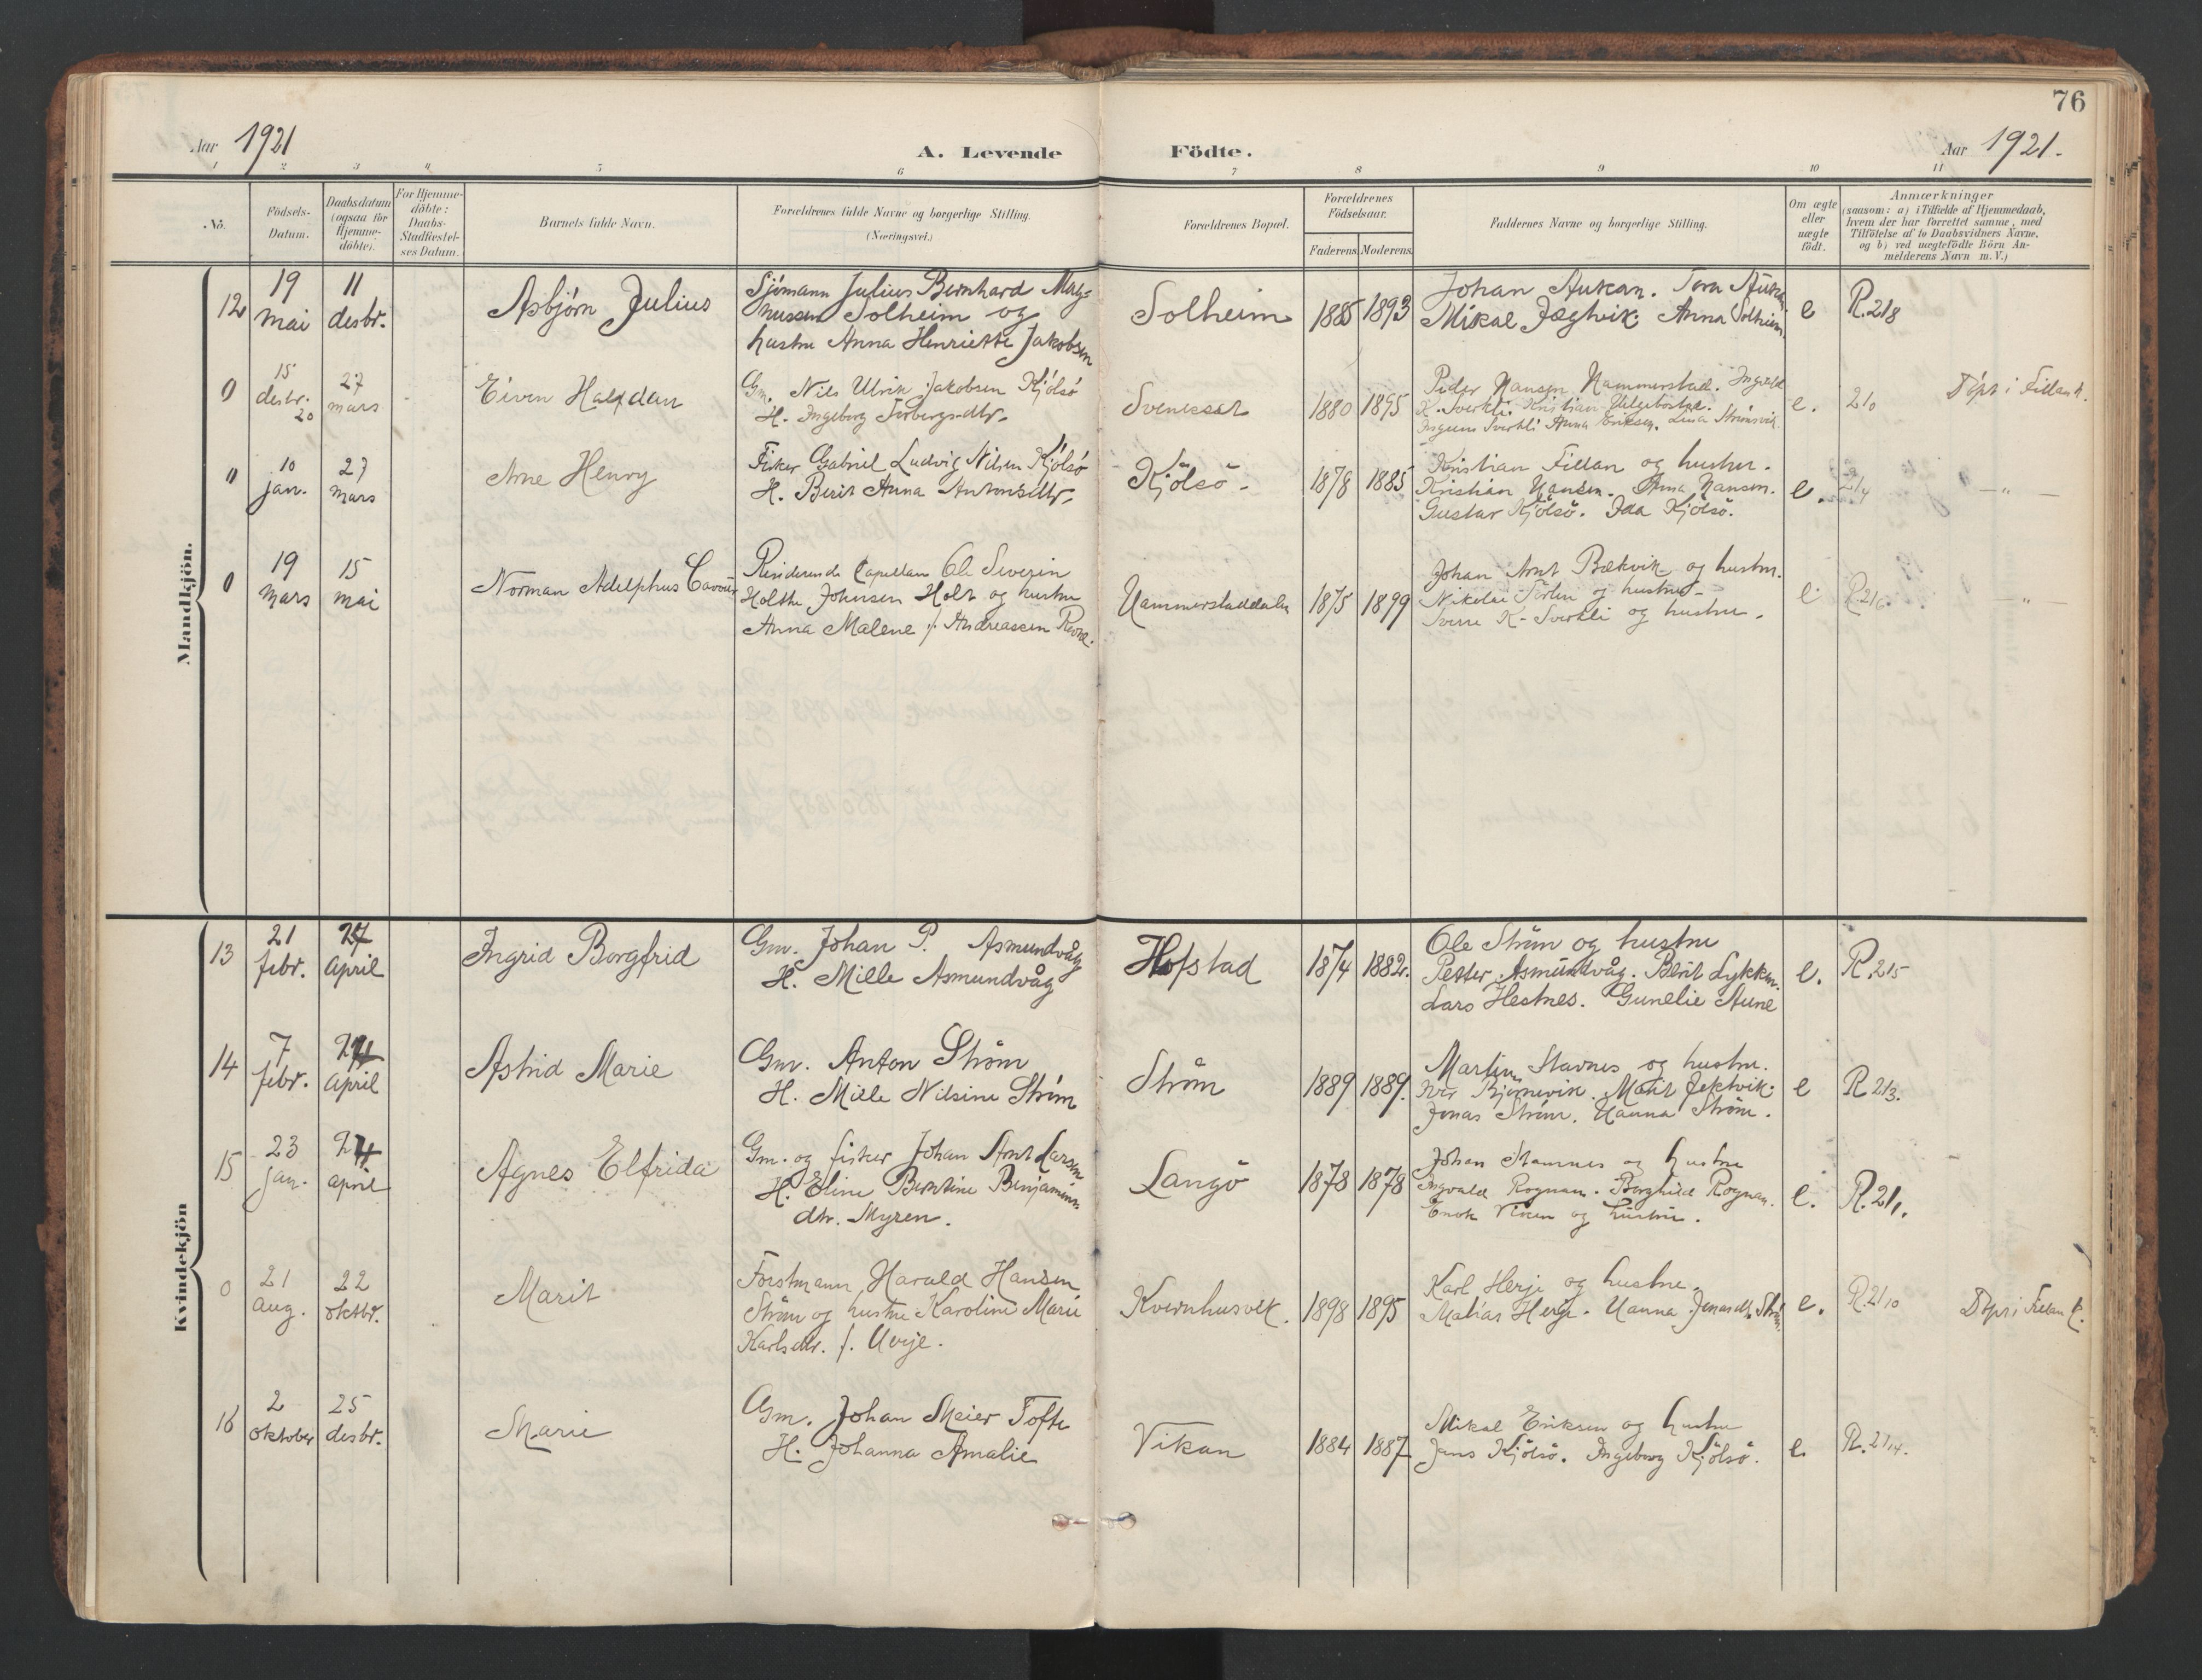 76
Aar 1921
A. Levende
Födte.
Aar 1921.
1 2 3 4 5 6 7 8 9 10 11
No.
Födsels-
Datum.
Daabsdatum
(ogsaa for
Hjemme-
döbte).
For Hjemme-
döbte:
Daabs-
Stadfæstel-
ses Datum.
Barnets fulde Navn.
Forældrenes fulde Navne og borgerlige Stilling.
(Næringsvei.)
Forældrenes Bopæl.
Forældrenes
Födselsaar.
Faderens. Moderens.
Faddernes Navne og borgerlige Stilling.
Om ægte
eller
uægte
födt.
Anmærkninger
(saasom: a) i Tilfælde af Hjemmedaab,
hvem der har forrettet samme, med
Tilföielse af to Daabsvidners Navne,
og b) ved uægtefödte Börn An-
melderens Navn m. V.)
Mandkjön.
12
19
mai
11
desbr.
Asbjörn Julius
Sjömann Julius Bernhard Mag-
nussen Solheim og
hustru Anna Henriette Jakobsen
Solheim
1885
1893
Johan Aukan. Tora Aukan
Mikal Jægtvik. Anna Solheim.
e
R.218
0
15
desbr.
20
27
mars
Eivin Halfdan
Gm. Nils Ulrik Jakobsen Kjölsö
H. Ingeborg Torbergsdtr.
1880
1895
Peder Hansen Hammerstad. Ingvald
K. Sverkli. Kristian
Sverkli Anna Eriksen. Lina Strömsvik.
e.
210
Döpt i Fillan k.
0
10
jan.
27
mars
Arne Henry
Fisker Gabriel Ludvig Nilsen Kjölsö
H. Berit Anna Antonsdtr.
Kjölsö
1878
1885
Kristian Fillan og hustru.
Kristian Hansen. Anna Hansen.
Gustav Kjölsö. Ida Kjölsö.
e.
214
— " —
0
19
mars
15
mai
Norman Adelphus Cavour
Residerende Capellan Ole Severin
Holthe Johnsen Holt og hustru
Anna Malene f. Andreassen
Hammerstaddalen
1875
1899
Johan Arnt Bækvik og hustru.
Nikolai og hustru
Sverre K. Sverkli og hustru.
e
R.216
— " —
Kvindekjön
13
21
febr.
27
april
Ingrid Borgfrid
Gm. Johan P. Asmundvåg
H. Mille Asmundvåg
Hofstad
1874
1882.
Ole Ström og hustru
Petter Asmundvåg. Berit Lykken.
Lars Hestnes. Gunelie Aune
e.
R.215
14
7
febr.
24
april
Astrid Marie
Gm. Anton Ström
H. Mille Nilsine Ström
Ström
1889
1889.
Martin Stavnes og hustru.
Iver Bjørnevik. Marit Jektvik.
Jonas Ström. Hanna Ström.
e
R 213.
15
23
jan.
24
april
Agnes Elfrida
Gm. og fisker Johan Arnt Larsen
H. Eline Berntine Benjamins
dtr. Myren.
Langö
1878
1878
Johan Stamnes og hustru
Ingvald Rognan. Borghild Rognan.
Enok Vikan og hustru.
e.
R.211.
0
21
aug.
22
oktbr.
Marit
Forstmann Harald Hansen
Ström og hustru Karoline Marie
Karlsdtr. f. Herje.
Kvernhusvik.
1898
1895
Karl Herje og hustru.
Matias Herje. Hanna Jonasdtr. Ström.
e.
R.2110
Döpt i Fillan k.
16
2
oktober
25
desbr.
Marie
Gm. Johan Meier Tofte
H. Johanna Amalie
Vikan
1884
1887
Mikal Eriksen og hustru
Jens Kjölsö. Ingeborg Kjölsö.
e.
R.2114.